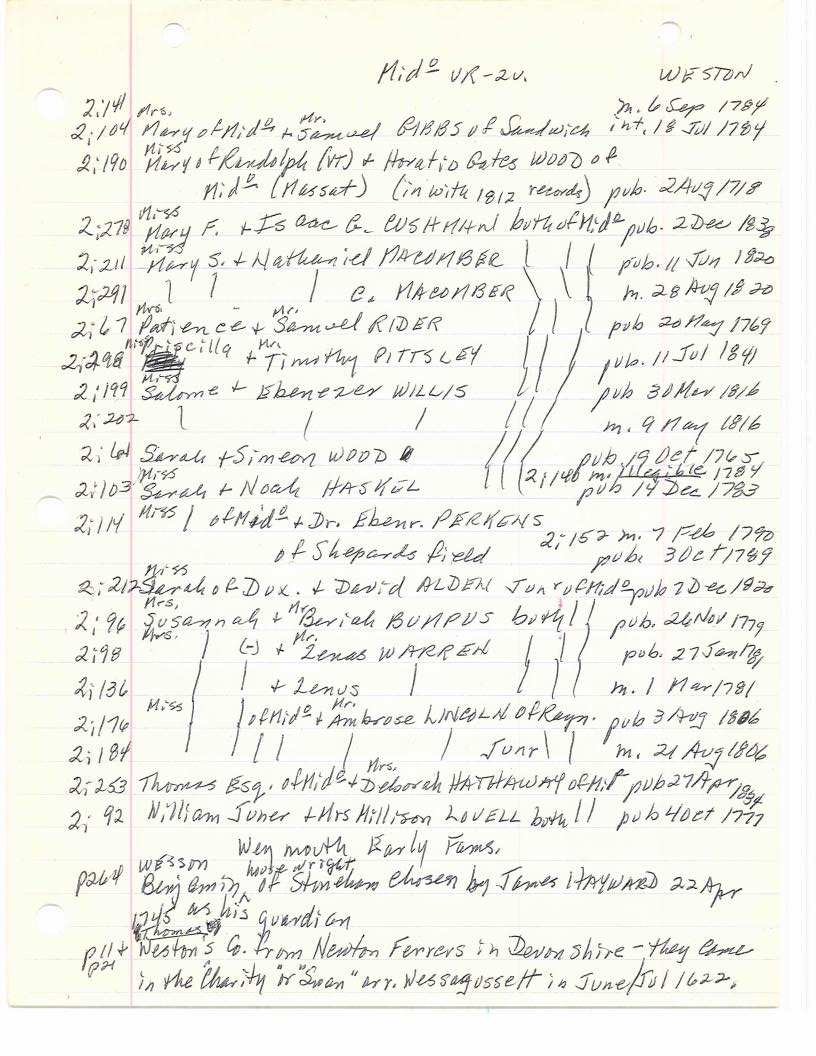 Midº VR-2v. WESTON
2;141 Mrs. Mr. m. 6 Sep 1784
2;104 Mary of Midº + Samuel GIBBS of Sandwich int. 18 Jul 1784
Miss
2;190 Mary of Randolph (VT) + Horatio Gates WOOD of
Midº (Massat) (in with 1812 records) pub. 2 Aug 1718
Miss
2;278 Mary F. + Isaac G. CUSHMAN both of Midº pub. 2 Dec 1838
Miss
2;211 Mary S. + Nathaniel MACOMBER pub. 11 Jun 1820
2;291 C. MACOMBER m. 28 Aug 1820
Mrs. Mr.
2;67 Patience + Samuel RIDER pub 20 May 1769
Miss Priscilla Mr.
2;298 + Timothy PITTSLEY pub. 11 Jul 1841
Miss
2;199 Salome + Ebenezer WILLIS pub 30 Mar 1816
2;202 m. 9 May 1816
2;61 Sarah + Simeon WOOD pub. 19 Oct 1765
Miss 2;140 m. illegible 1784
2;103 Sarah + Noah HASKEL pub 14 Dec 1783
2;114 Miss of Midº + Dr. Ebenr. PERKENS 2;152 m. 7 Feb 1790
of Shepards field pub. 3 Oct 1789
Miss
2;212 Sarah of Dux. + David ALDEN Junr of Midº pub 7 Dec 1820
Mrs. Mr.
2;96 Susannah + Beriah BUMPUS both pub. 26 Nov 1779
Mrs. Mr.
2;98 (-) + Zenas WARREN pub. 27 Jan 1781
2;136 + Zenus m. 1 Mar 1781
Miss Mr.
2;176 of Midº + Ambrose LINCOLN of Rayn. pub 3 Aug 1806
2;184 Junr m. 21 Aug 1806
Mrs.
2;253 Thomas Esq. of Midº + Deborah HATHAWAY of Midº pub 27 Apr 1834
2;92 William Juner + Mrs Millison LOVELL both pub 4 Oct 1777
Weymouth Early Fams.
WESSON house wright
p264 Benjamin, ^ of Stoneham chosen by James HAYWARD 22 Apr
1745 as his guardian
"Thomas
p11 + p21 Weston's Co. from Newton Ferrers in Devonshire - they came
in the "Charity" or "Swan" arr. Wessagussett in June/Jul 1622.